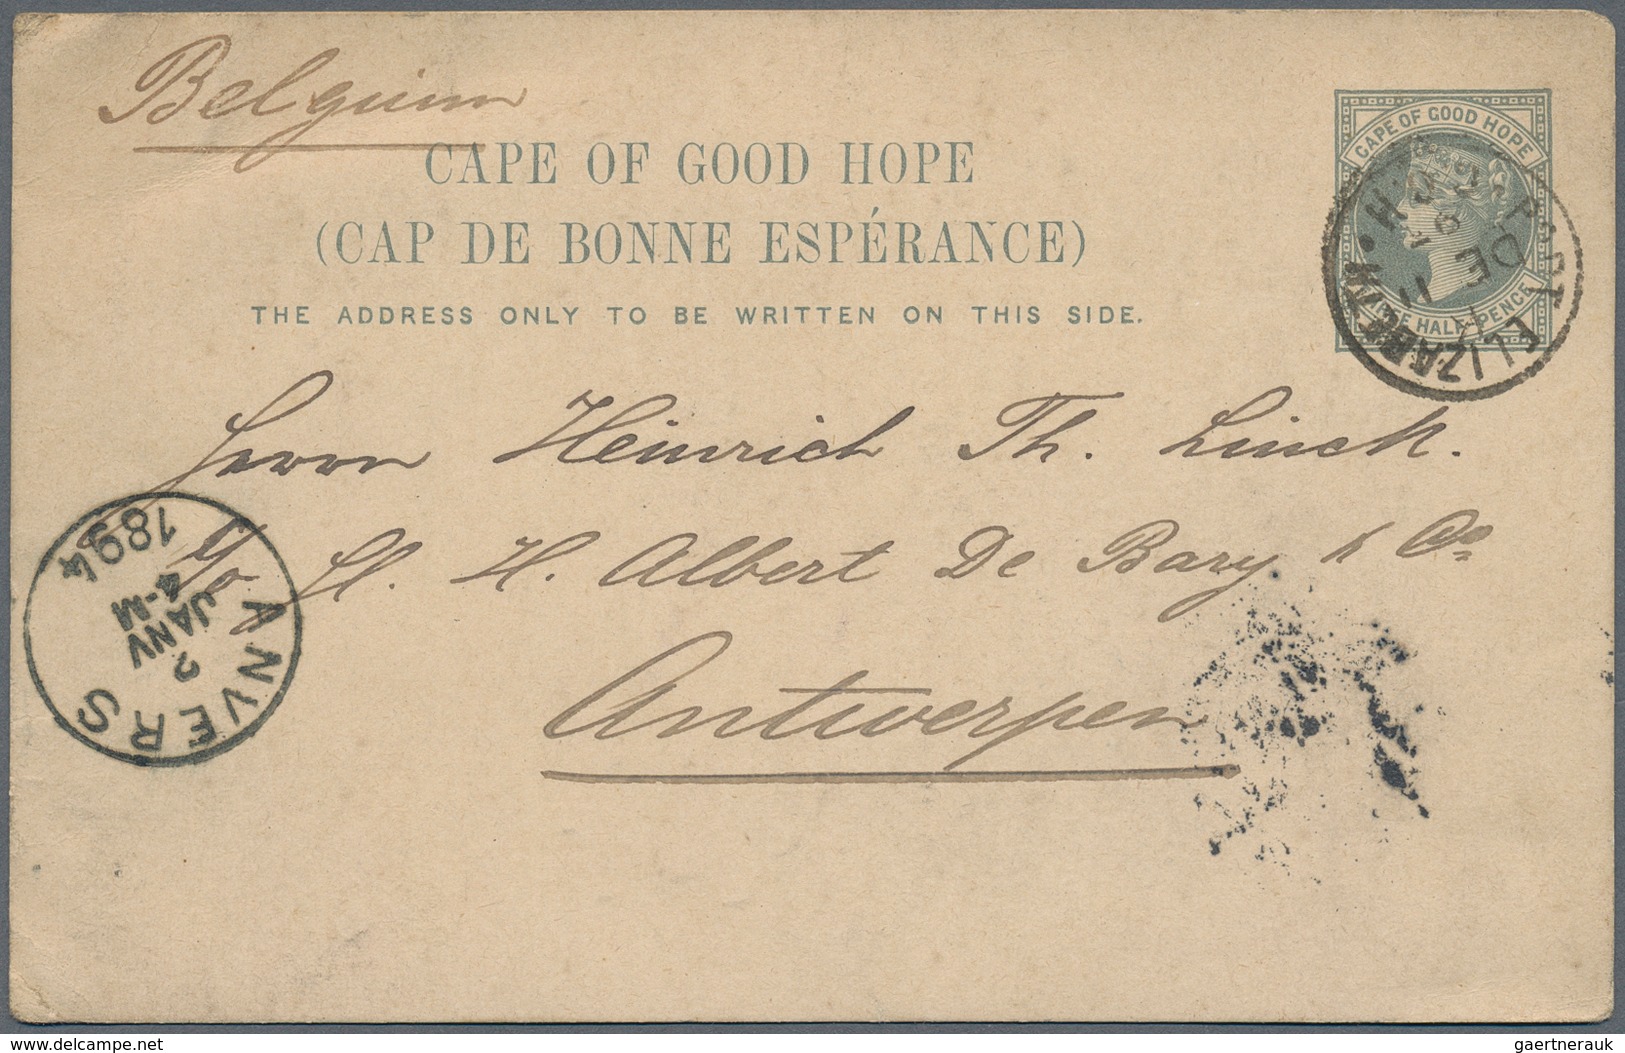 Belgium
CAPE OF GOOD HOPE
(CAP DE BONNE ESPÉRANCE)
THE ADDRESS ONLY TO BE WRITTEN ON THIS SIDE.
CAPE OF GOOD HOPE
HALF PENCE
PORT ELIZABETH
11
DE
Herrn Heinrich Th. Linck.
c/o H. Albert De Bary & Co
Antwerpen
ANVERS
2
JANV
4-M
1894
delcampe.net
gaertnerauk